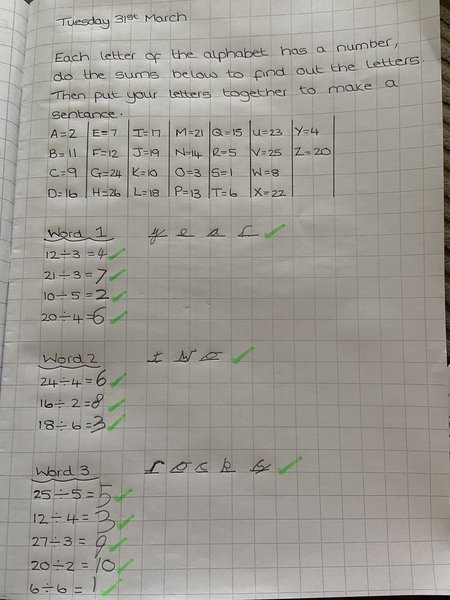 Tuesday 31st March
Each letter of the alphabet has a number,
do the sums below to find out the letters.
Then put your letters together to make a
sentence.
A=2 E=7 I=17 M=21 Q=15 U=23 Y=4
B=11 F=12 J=19 N=14 R=5 V=25 Z=20
C=9 G=24 K=10 O=3 S=1 W=8
D=16 H=26 L=18 P=13 T=6 X=22
Word 1 y e a r
12÷3=4
21÷3=7
10÷5=2
20÷4=6
Word 2 t w o
24÷4=6
16÷2=8
18÷6=3
Word 3 r o c k s
25÷5=5
12÷4=3
27÷3=9
20÷2=10
6÷6=1